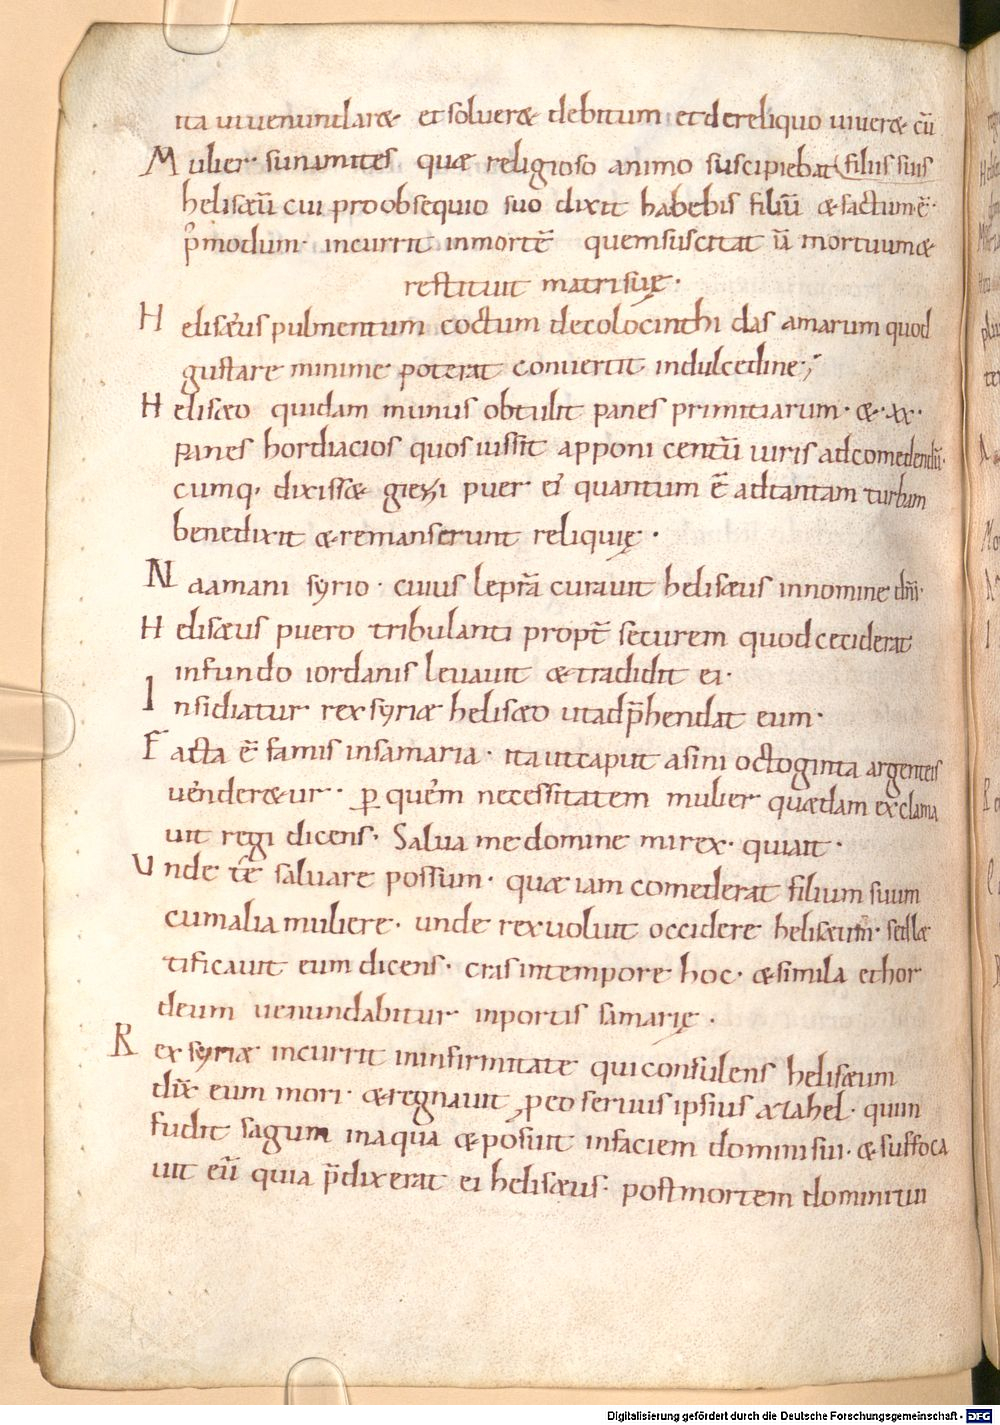 ita ut uenundaret et solueret debitum et dereliquo uiueret cū
Mulier sunamites quae religioso animo suscipiebat (filiis suis
helisaeū cui pro obsequio suo dixit habebis filiū et factum ē·
p̄modum· incurrit in mortē quem suscitat ū mortuum et
restituit matri suę·
Helisaeus pulmentum coctum de colocinthi das amarum quod
gustare minime poterat conuertit in dulcedine;
Helisaeo quidam munus obtulit panes primitiarum· et xx·
panes hordiacios quos iussit apponi centū uiris ad comedendū·
cumq· dixisset giezi puer ei quantum ē ad tantam turbam
benedixit et remanserunt reliquię·
Naamani syrio· cuius leprā curauit helisaeus in nomine dn̄i·
Helisaeus puero tribulanti propt̄ securem quod ceciderat
in fundo iordanis leuauit et tradidit ei·
Insidiatur rex syriae helisaeo ut adp̄hendat eum·
Facta ē famis in samaria· ita ut caput asini octoginta argenteis
uenderetur· p̱ quem necessitatem mulier quaedam exclama
uit regi dicens· Salua me domine mi rex· qui ait·
Unde te saluare possum· quae iam comederat filium suum
cum alia muliere· unde rex uoluit occidere helisaeum· sed lae
tificauit eum dicens· cras in tempore hoc· et simila et hor
deum uenundabitur in portis samarię·
Rex syriae incurrit in infirmitate qui consulens helisaeum
dix̄ eum mori· et regnauit p eo seruus ipsius azahel· quī
fudit sagum in aqua et posuit in faciem domini sui· et suffoca
uit eū quia p̄dixerat ei helisaeus· post mortem domini tui
Digitalisierung gefördert durch die Deutsche Forschungsgemeinschaft - DFG